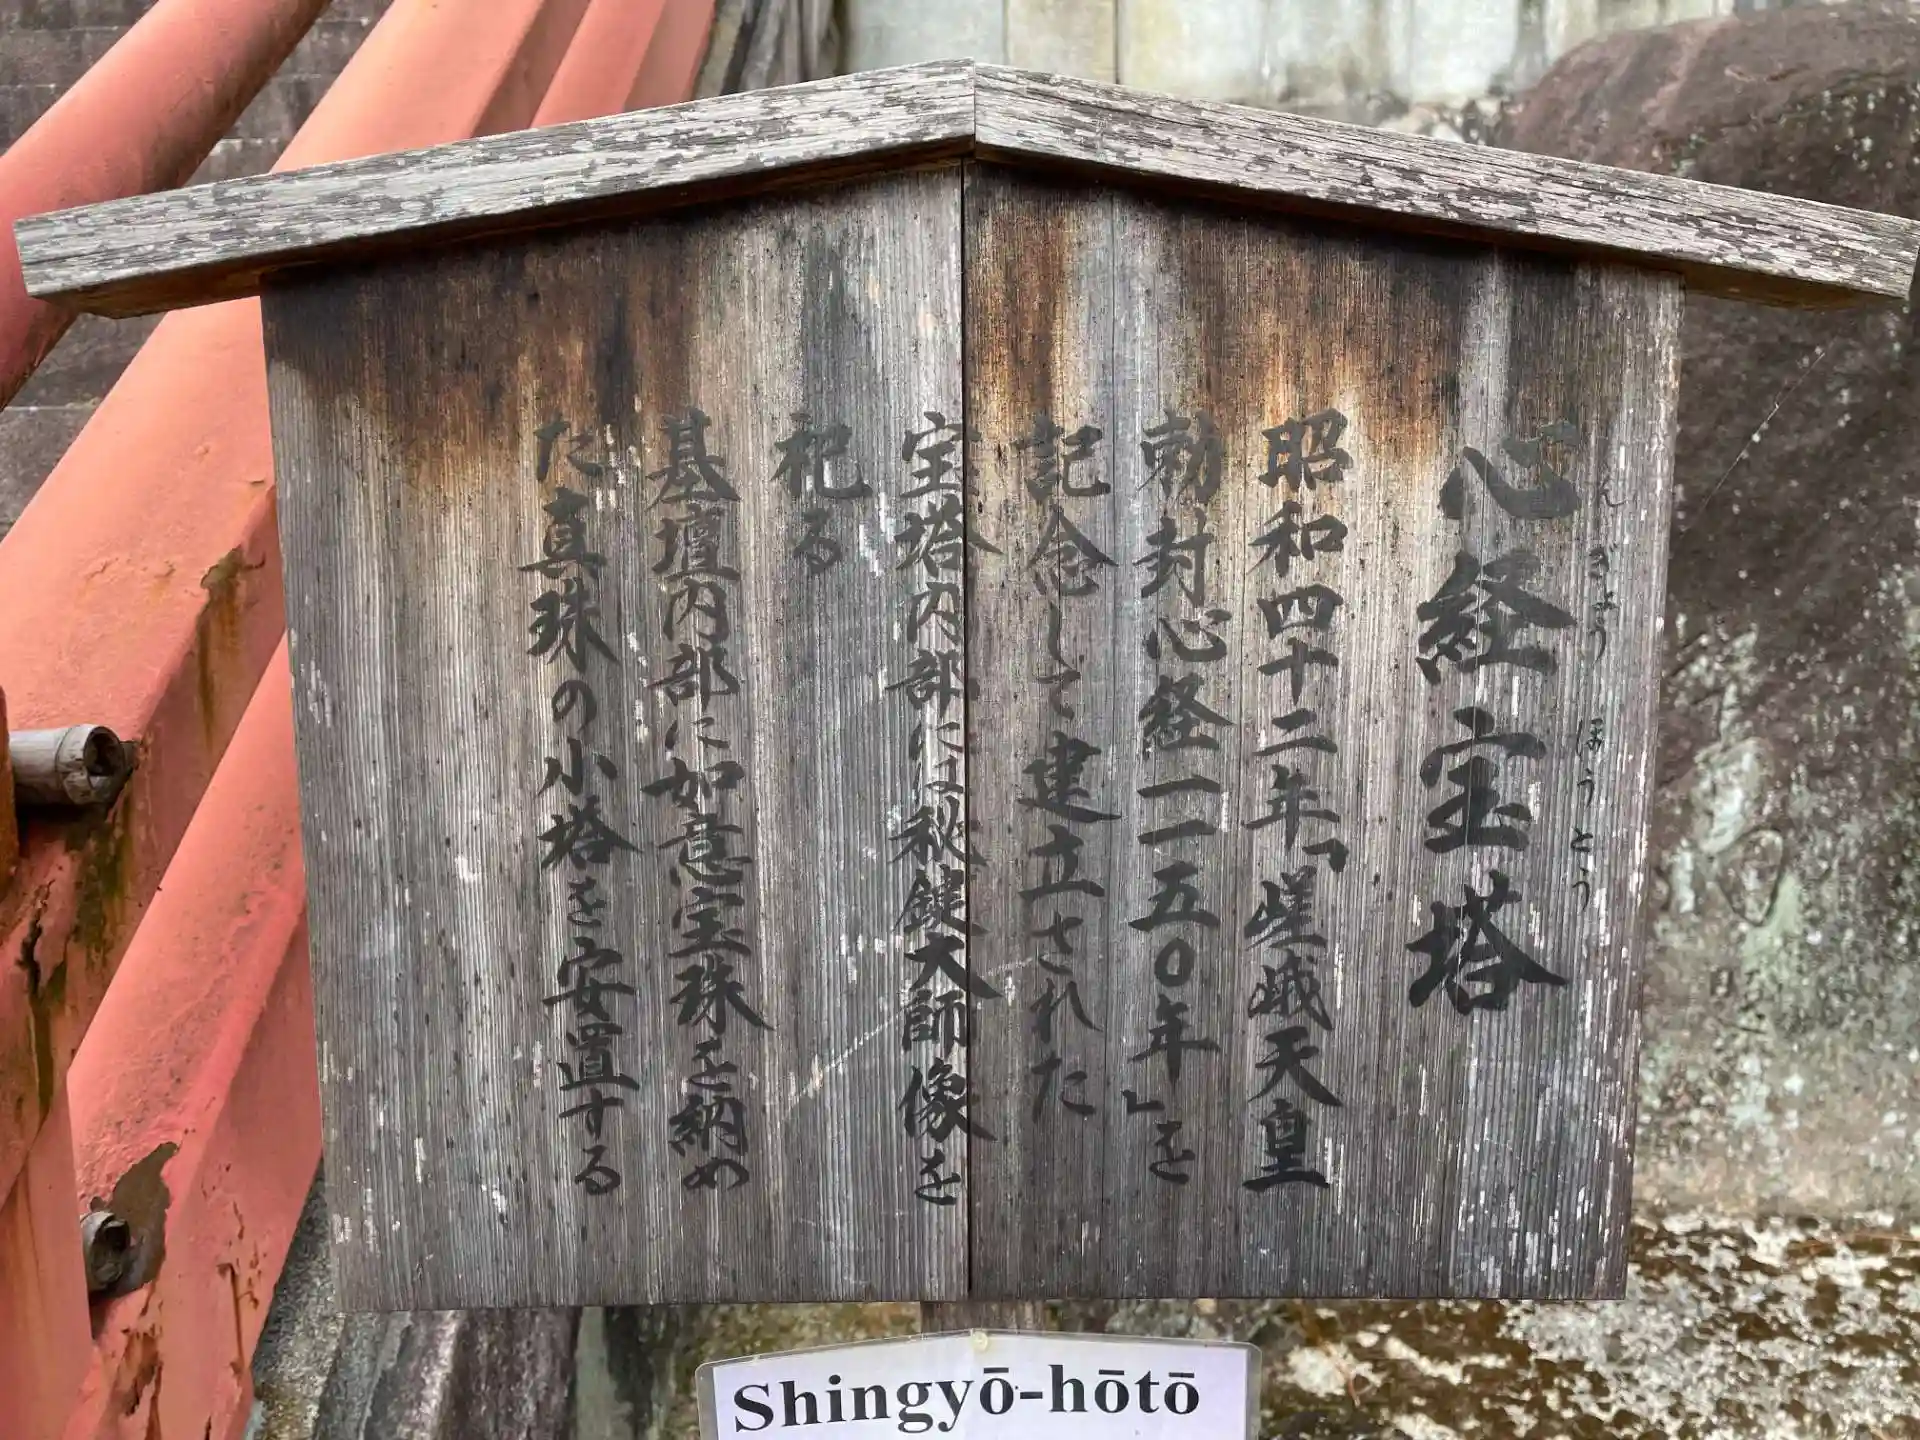 心経宝塔
んぎょうほうとう
昭和四十二年「嵯峨天皇
勅封心経一一五〇年」を
記念して建立された
宝塔内部には秘鍵大師像を
祀る
基壇内部に如意宝珠を納め
た真珠の小塔を安置する
Shingyō-hōtō